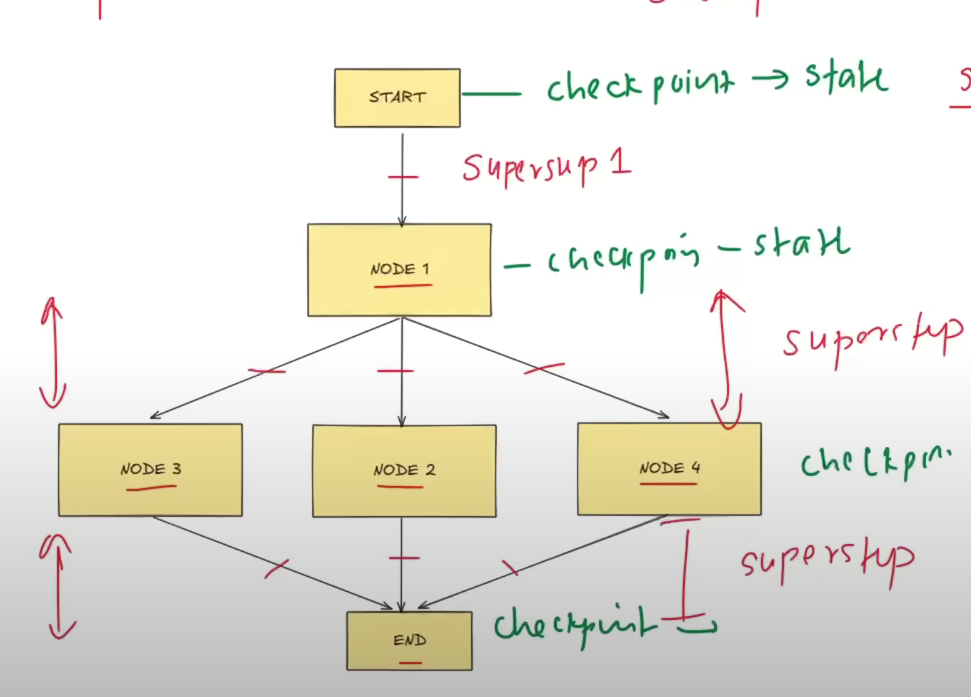 START
checkpoint → state
Supersup 1
NODE 1
- checkpoin - state
superstup
NODE 3
NODE 2
NODE 4
checkpn.
superstup
END
checkpoint